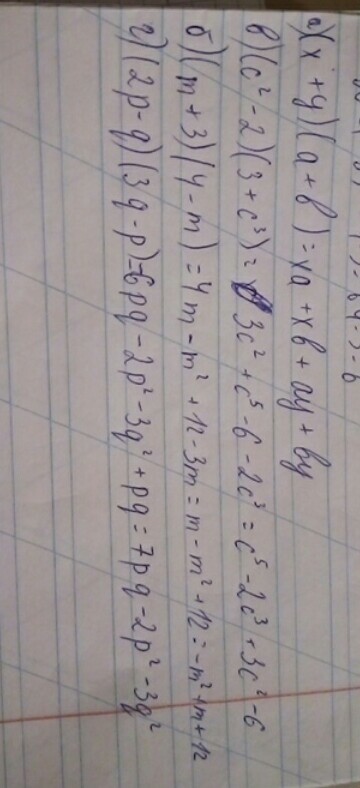 а) (x + y)(a + b) = xa + xb + ay + by
в) (c² - 2)(3 + c³) = 3c² + c⁵ - 6 - 2c³ = c⁵ - 2c³ + 3c² - 6
б) (m + 3)(4 - m) = 4m - m² + 12 - 3m = m - m² + 12 = -m² + m + 12
г) (2p - q)(3q - p) = 6pq - 2p² - 3q² + pq = 7pq - 2p² - 3q²